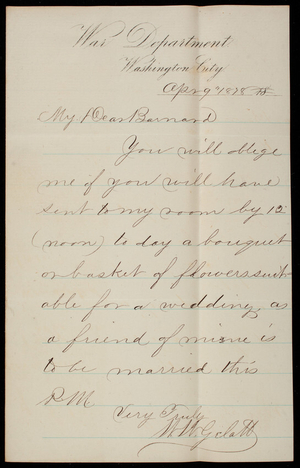 War Department
Washington City
Apr 9 1878
My Dear Barnard
You will oblige
me if you will have
sent to my room by 12
(noon) to day a bouquet
or basket of flowers suit-
able for a wedding, as
a friend of mine is
to be married this
P.M
Very Truly